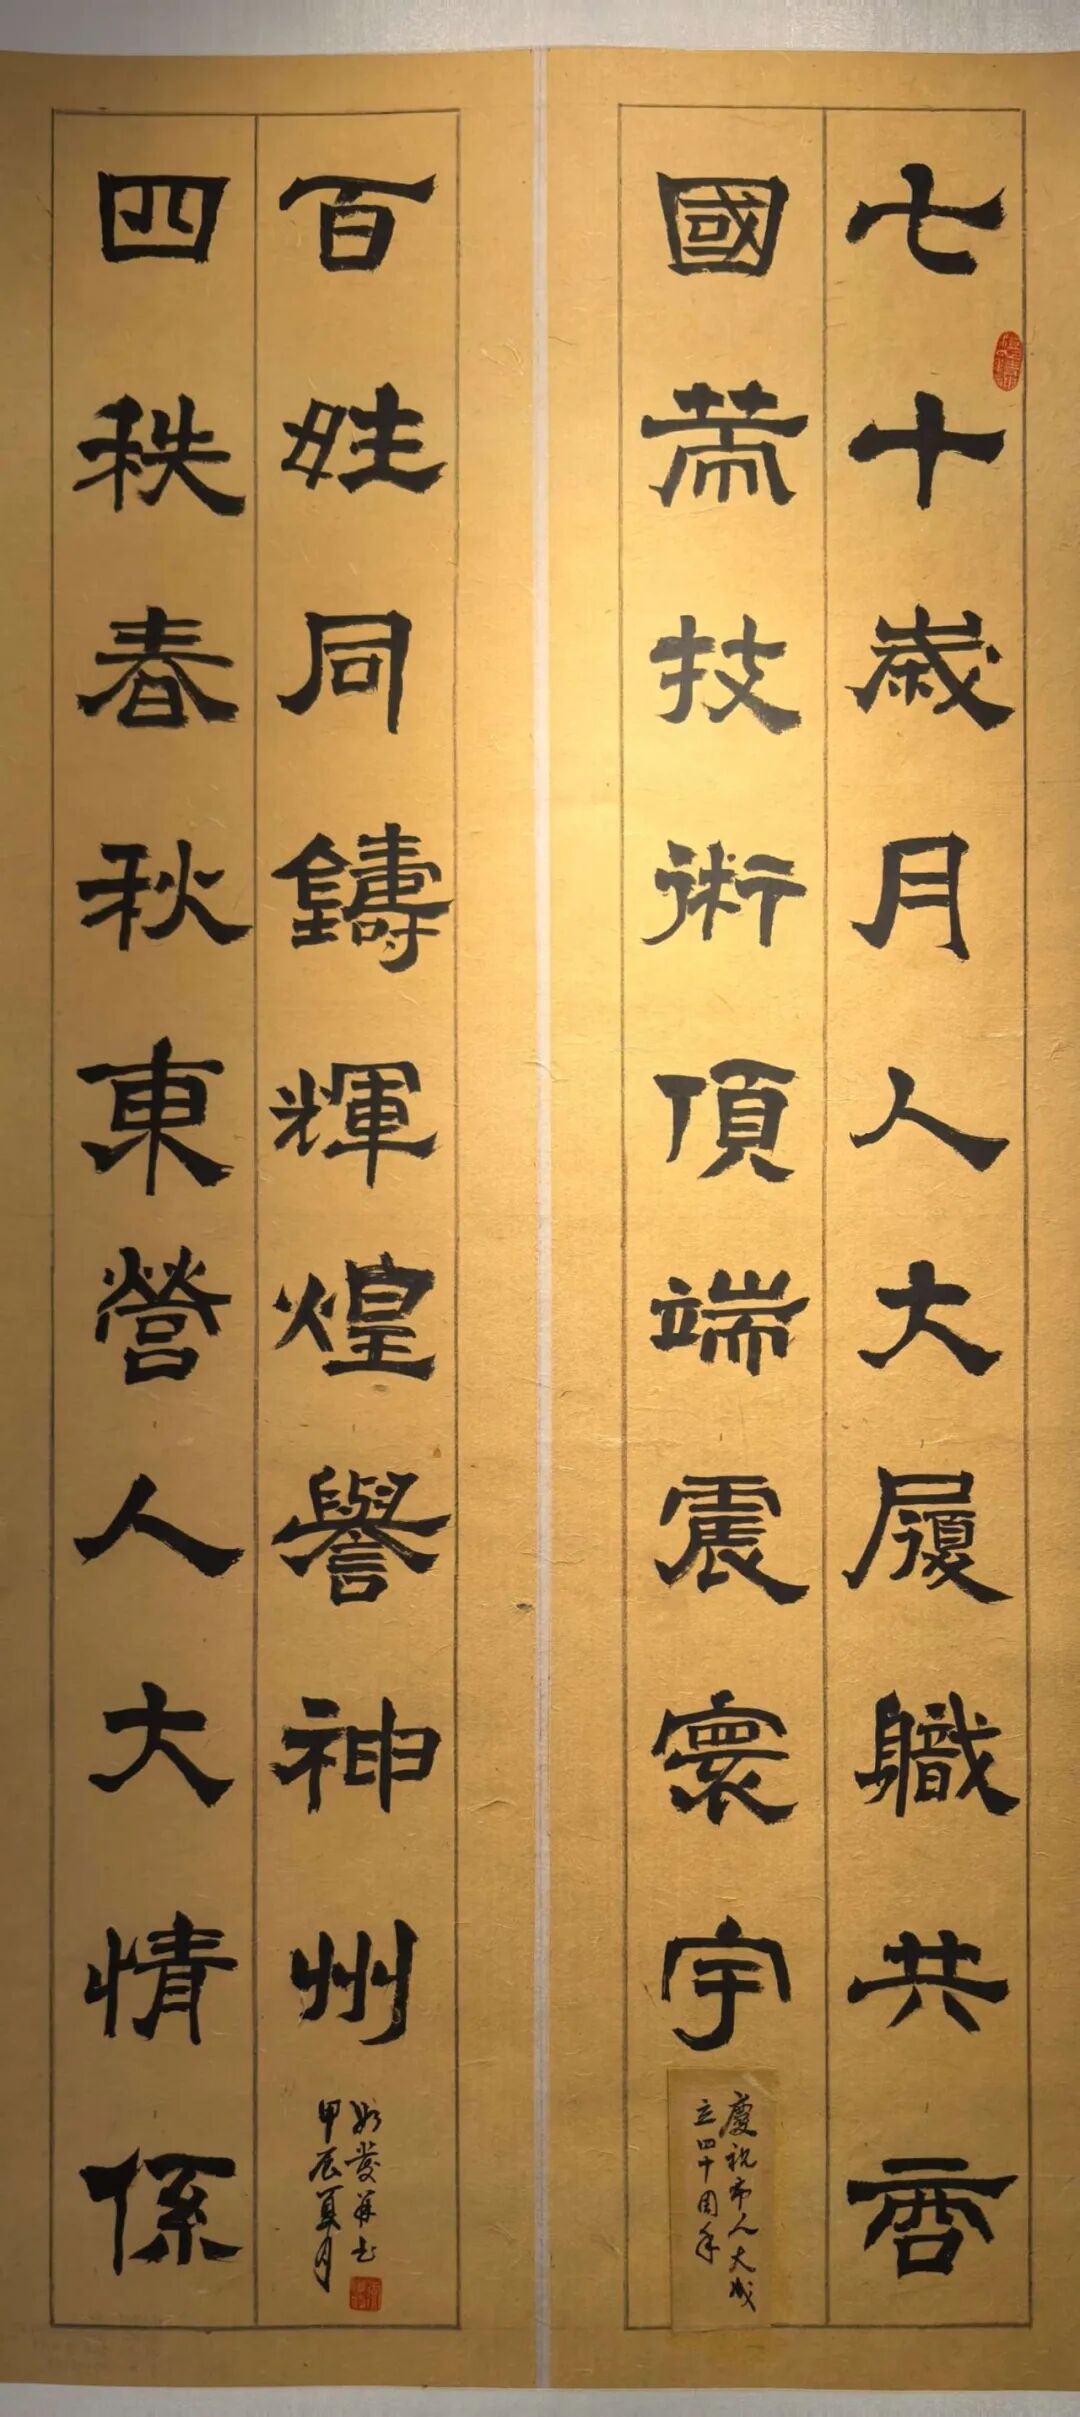 七十歲月人大履職共商
國策技術頂端震寰宇
慶祝市人大成
立四十周年
百姓同鑄輝煌譽神州
四秩春秋東營人大情係
發并书
甲辰夏月